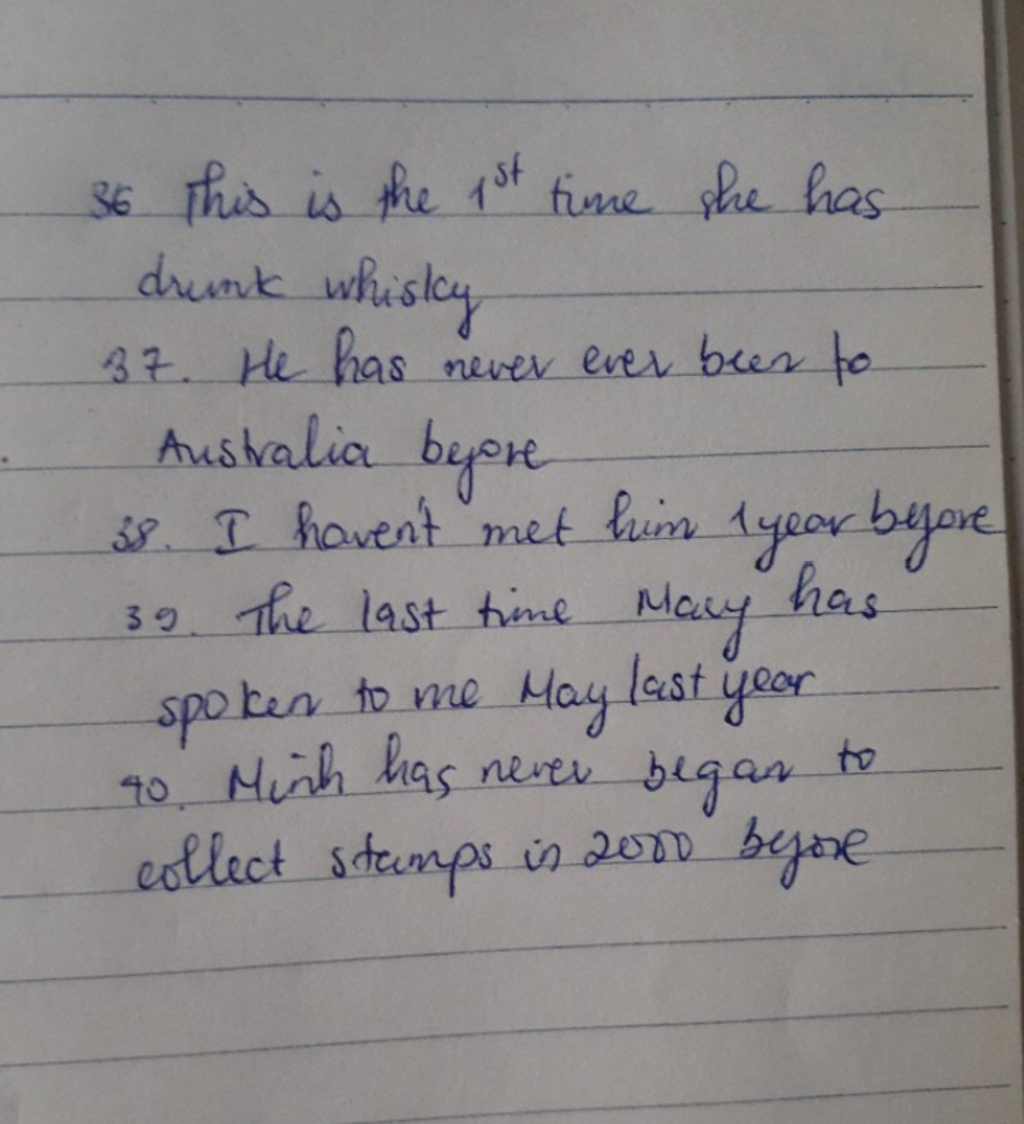 36 This is the 1st time she has
drunk whisky
37. He has never ever been to
Australia before
38. I haven't met him 1 year before
39. The last time Mary has
spoken to me May last year
40. Minh has never began to
collect stamps in 2000 before